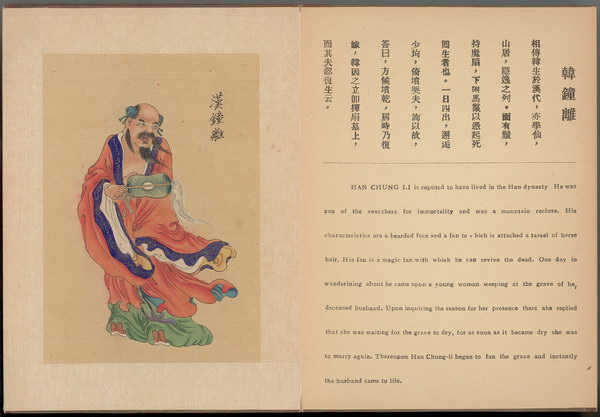 漢鍾離
韓鐘離
相傳韓生於漢代,亦學仙,
山居,隱逸之列。面有鬚,
持魔扇,下附馬鬣以憑起死
囘生者也。一日四出,邂逅
倚墳哭夫,詢以故,
答曰,方候墳乾,屆時乃復
嫁,韓因之立卽揮扇墓上,
而其夫復生云。
HAN CHUNG LI is reputed to have lived in the Han dynasty He was
one of the searchers for immortality and was a mountain recluse. His
characteristics are a bearded face and a fan to which is attached a tassel of horse
hair. His fan is a magic fan with which he can revive the dead. One day in
wanderining about he came upon a young woman weeping at the grave of her
deceased husband. Upon inquiring the reason for her presence there she replied
that she was waiting for the grave to dry, for as soon as it became dry she was
to marry again. Thereupon Han Chung-li began to fan the grave and instantly
the husband came to life.